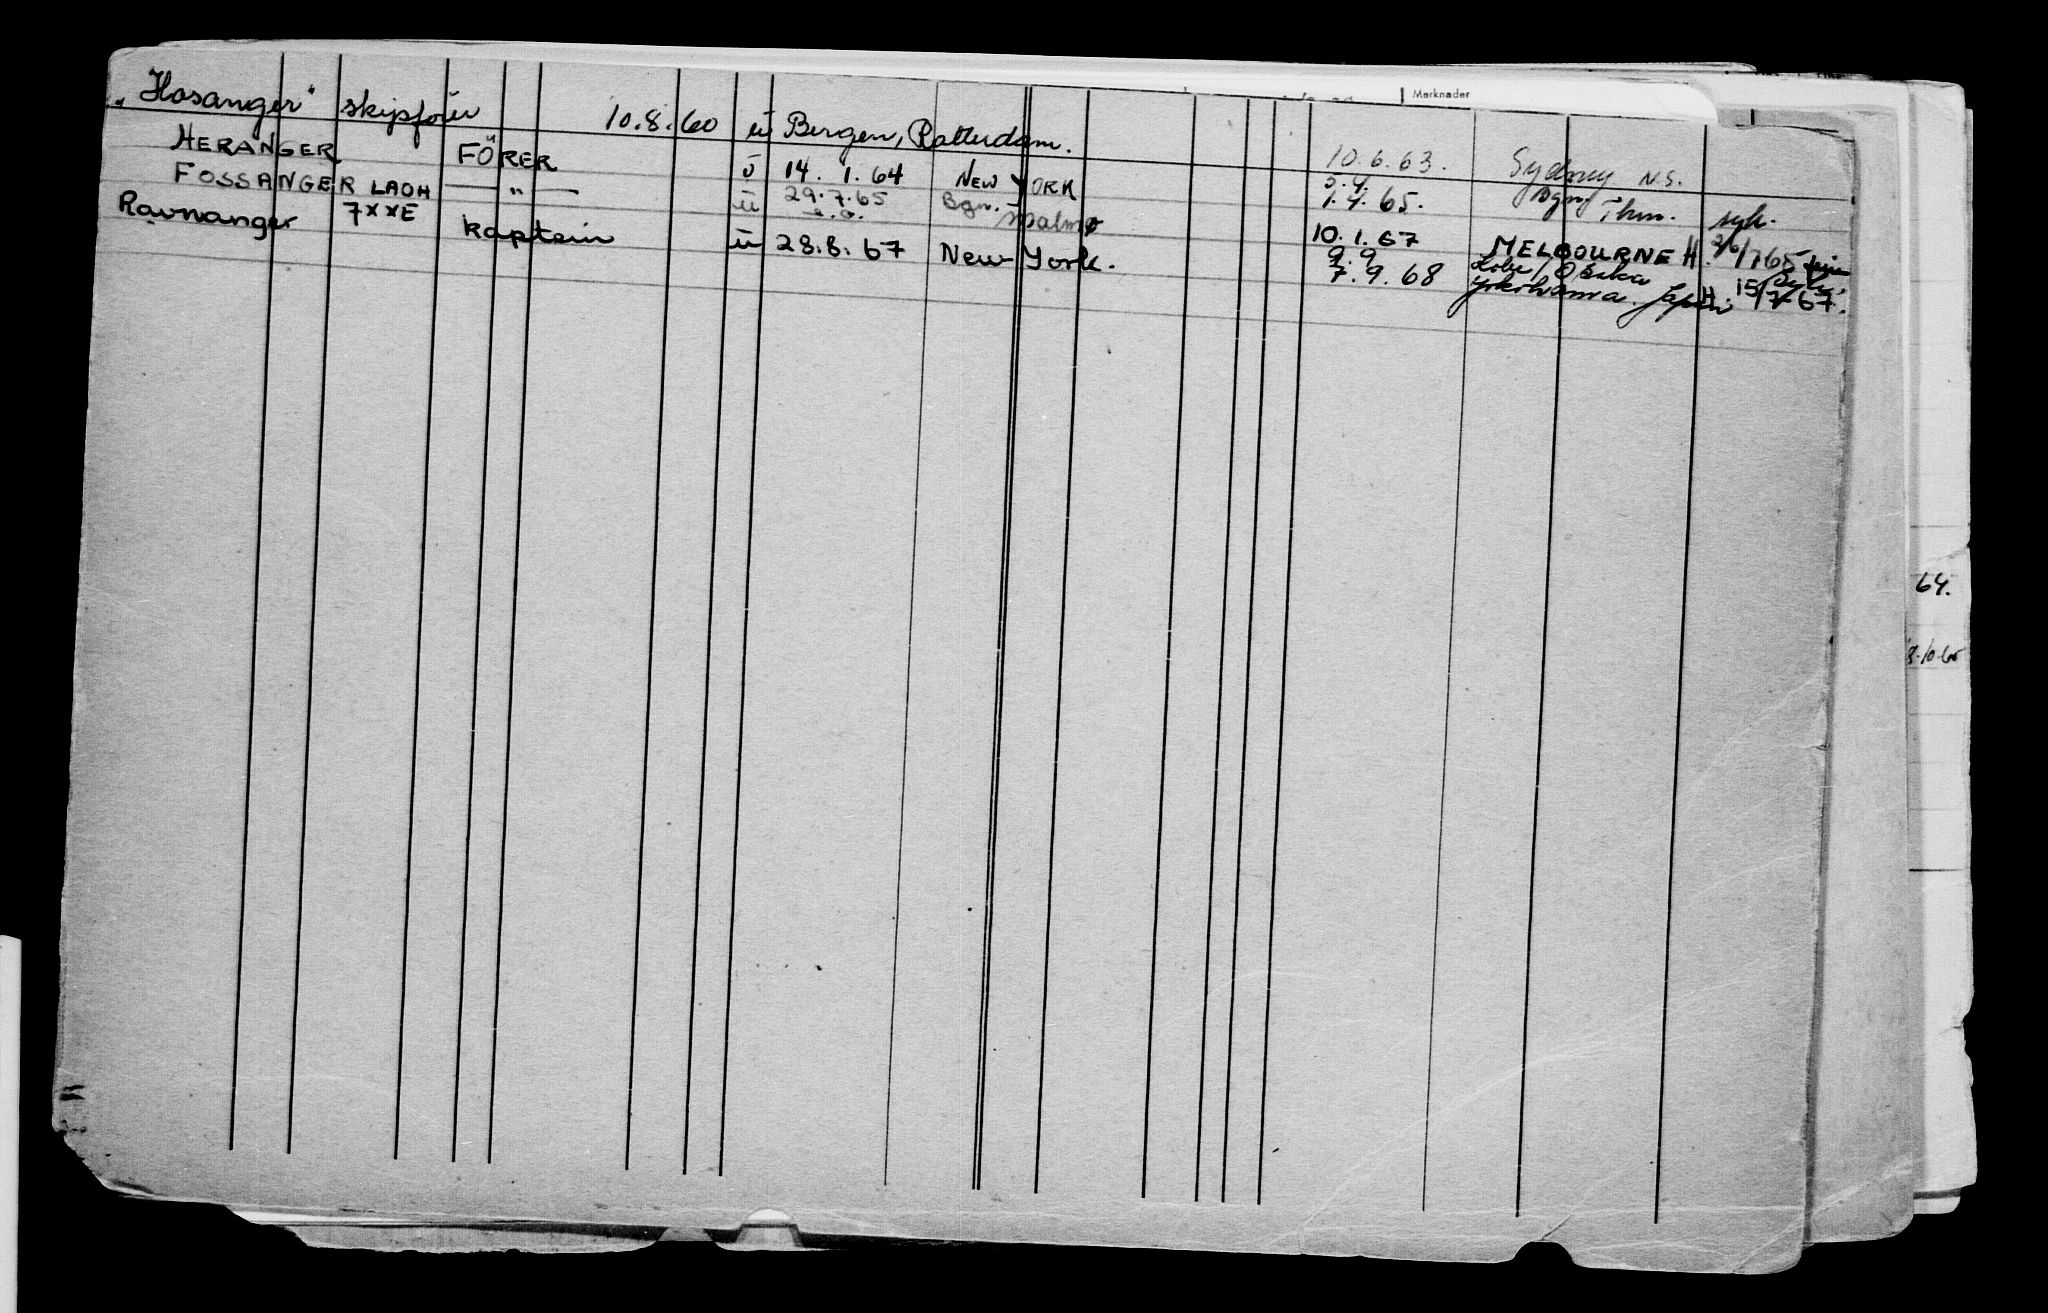 Merknader
„Hosanger" skipfører 10.8.60 ü Bergen, Rotterdam. 10.6.63. Sydney N.S.
HERANGER FÖRER ü 14.1.64 NEW YORK 5.4. 1.4.65. Bgn. Thm. syk.
FOSSANGER LAOH — " — ü 29.7.65 Bgn. Malmø 10.1.67 MELBOURNE H. 2/6/7 65
Ravnanger 7XXE kaptein ü 28.8.67 New York. 9.9 7.9.68 Kobe/Osaka Yokohama. Japan H. 15/7-67.
64.